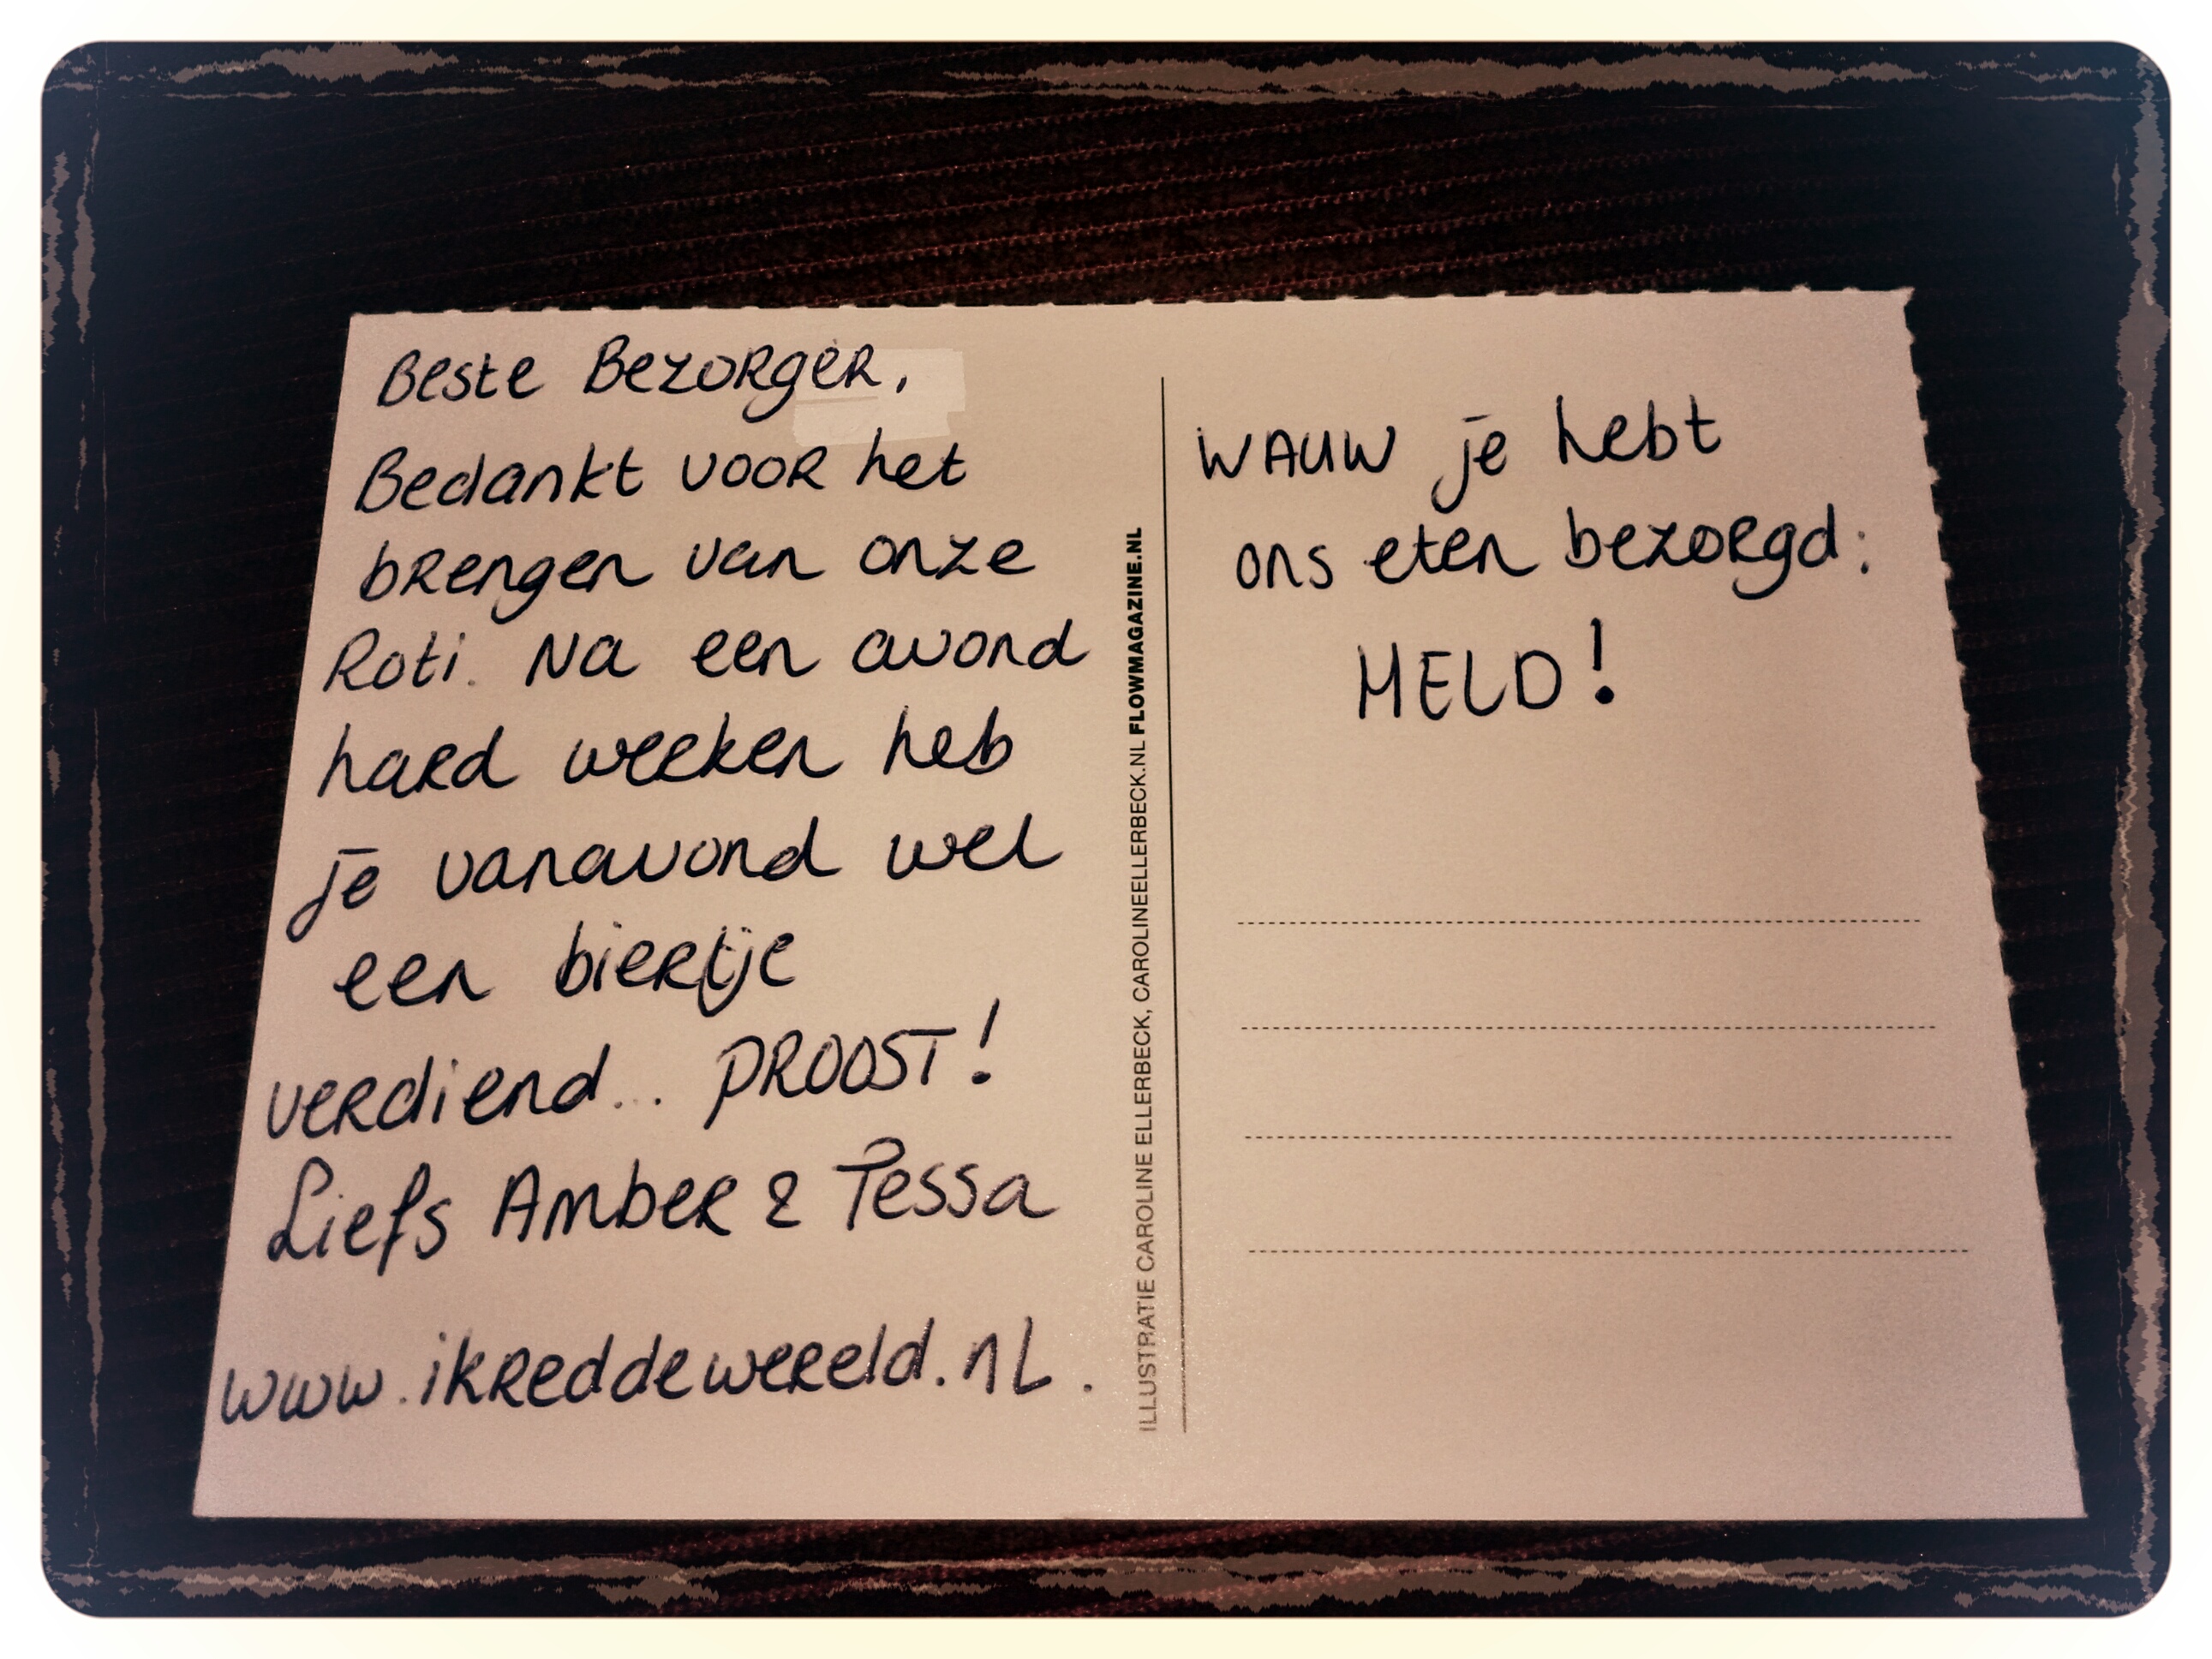 Beste Bezorger,
Bedankt voor het
brengen van onze
Roti. Na een avond
hard werken heb
je vanavond wel
een biertje
verdiend... PROOST!
Liefs Amber & Tessa
www.ikreddewereld.nl.
ILLUSTRATIE CAROLINE ELLERBECK, CAROLINEELLERBECK.NL FLOWMAGAZINE.NL
WAUW je hebt
ons eten bezorgd:
HELD!